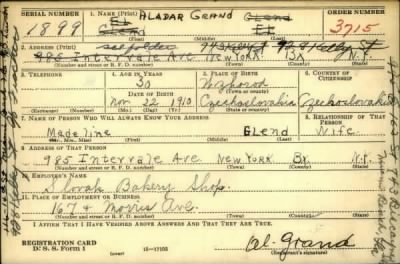 SERIAL NUMBER 1. NAME (Print) ORDER NUMBER
1899 ALADAR GRAND Glend 3715
El El
(First) (Middle) (Last)
2. ADDRESS (Print)
986 Intervale Ave. New York. Bx N.Y.
(Number and street or R. F. D. number) (Town) (County) (State)
3. TELEPHONE 4. AGE IN YEARS 5. PLACE OF BIRTH 6. COUNTRY OF CITIZENSHIP
30 Uzhorod
DATE OF BIRTH
Nov. 22 1910 Czechoslovakia Czechoslovakia
(Exchange) (Number) (Mo.) (Day) (Yr.) (State or country)
7. NAME OF PERSON WHO WILL ALWAYS KNOW YOUR ADDRESS 8. RELATIONSHIP OF THAT PERSON
Madeline Glend Wife
(Mr., Mrs., Miss) (First) (Middle) (Last)
9. ADDRESS OF THAT PERSON
985 Intervale Ave. New York. Bx. N.Y.
(Number and street or R. F. D. number) (Town) (County) (State)
10. EMPLOYER'S NAME
Slovak Bakery Shop.
11. PLACE OF EMPLOYMENT OR BUSINESS
1674 Morris Ave.
(Number and street or R. F. D. number) (Town) (County) (State)
I AFFIRM THAT I HAVE VERIFIED ABOVE ANSWERS AND THAT THEY ARE TRUE.
REGISTRATION CARD
D. S. S. Form 1 16—17105 Al. Grand